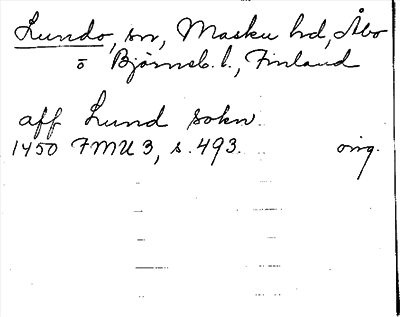 Lundo, sn, Masku hd, Åbo
o Björneb. l., Finland
aff Lund sokn.
1450 FMU 3, s. 493. orig.